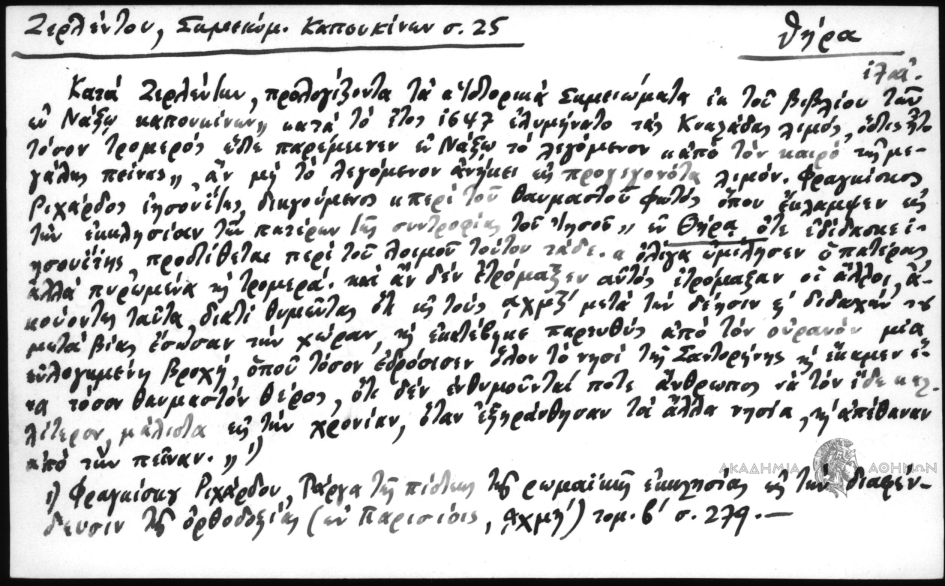 Ζερλέντου, Σημειώμ. Καπουκίνων σ. 25
Θήρα
Κατὰ Ζερλέντην, προλογίζοντα τὰ "Ἱστορικὰ Σημειώματα ἐκ τοῦ βιβλίου τῶν
ἐν Νάξῳ καπουκίνων" κατὰ τὸ ἔτος 1647 ἐλυμήνατο τὰς Κυκλάδας λιμός,
τόσον τρομερὸς ὥστε παρέμεινεν ἐν Νάξῳ τὸ λεγόμενον "ἀπὸ τὸν καιρὸ τῆς με-
γάλης πείνας", ἂν μὴ τὸ λεγόμενον ἀνήκει εἰς προγεγονότα λιμόν. Φραγκίσκος
Ριχάρδος ἰησουΐτης, διηγούμενος "περὶ τοῦ θαυμαστοῦ φωτὸς ὁποῦ ἔκλαμψεν εἰς
τὴν ἐκκλησίαν τῶν πατέρων τῆς συντροφίας τοῦ Ἰησοῦ" ἐν Θήρᾳ, ὅτε ἐδίδασκε ἰ-
ησουΐτης, προστίθεται περὶ τοῦ λοιμοῦ τούτου τάδε. "ὀλίγα ὡμίλησεν ὁ πατέρας,
ἀλλὰ πυρωμένα κὴ τρομερά. καὶ ἂν δὲν ἐτρόμαξεν αὐτὸς ἐτρόμαξαν οἱ ἄλλοι, ἀ-
κούοντες ταῦτα, διατὶ θυμῶντας ὅτι εἰς τοὺς ͵αχμζ΄ μετὰ τὴν δέησιν κ΄ διδαχήν του
μετὰ βίας ἔσωσαν τὴν χώραν, κὴ ἐκατέβηκε παρευθὺς ἀπὸ τὸν οὐρανὸν μία
εὐλογημένη βροχή, ὁποῦ τόσον ἐδρόσισεν ὅλον τὸ νησὶ τῆς Σαντορήνης κὴ ἔκαμεν ἕ-
να τόσον θαυμαστὸν θέρος, ὅτι δὲν ἐνθυμοῦνται ποτὲ ἄνθρωπος νὰ τὸν ἴδε καλ-
λίτερον, μάλιστα εἰς τὴν χρονίαν, ὅταν ἐξηράνθησαν τὰ ἄλλα νησία, κὴ ἀπέθαναν
ἀπὸ τὴν πεῖναν." 1)
ΑΚΑΔΗΜΙΑ ΑΘΗΝΩΝ
1) Φραγκίσκου Ριχάρδου, Τάργα τῆς πίστεως τῆς ρωμαϊκῆς ἐκκλησίας εἰς τὴν διαφέν-
δευσιν τῆς ὀρθοδοξίας (ἐν Παρισίοις, ͵αχμή) τομ. β΄ σ. 279. —